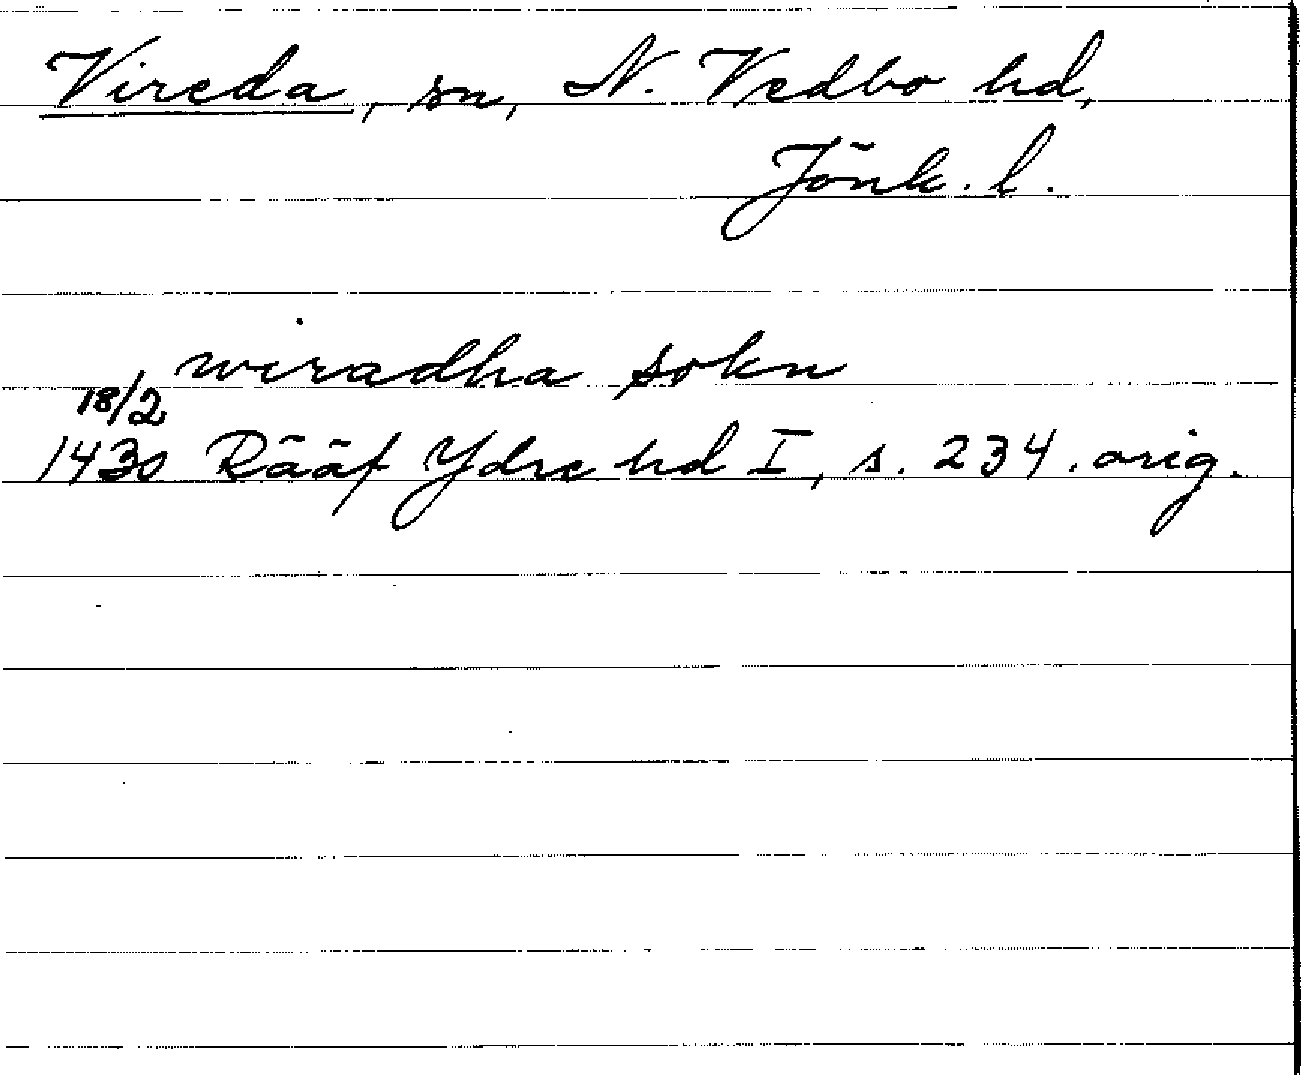 Vireda, sn, N. Vedbo hd,
Jönk. l.
wiradha sokn
18/2
1430 Rääf Ydre hd I, s. 234. orig.